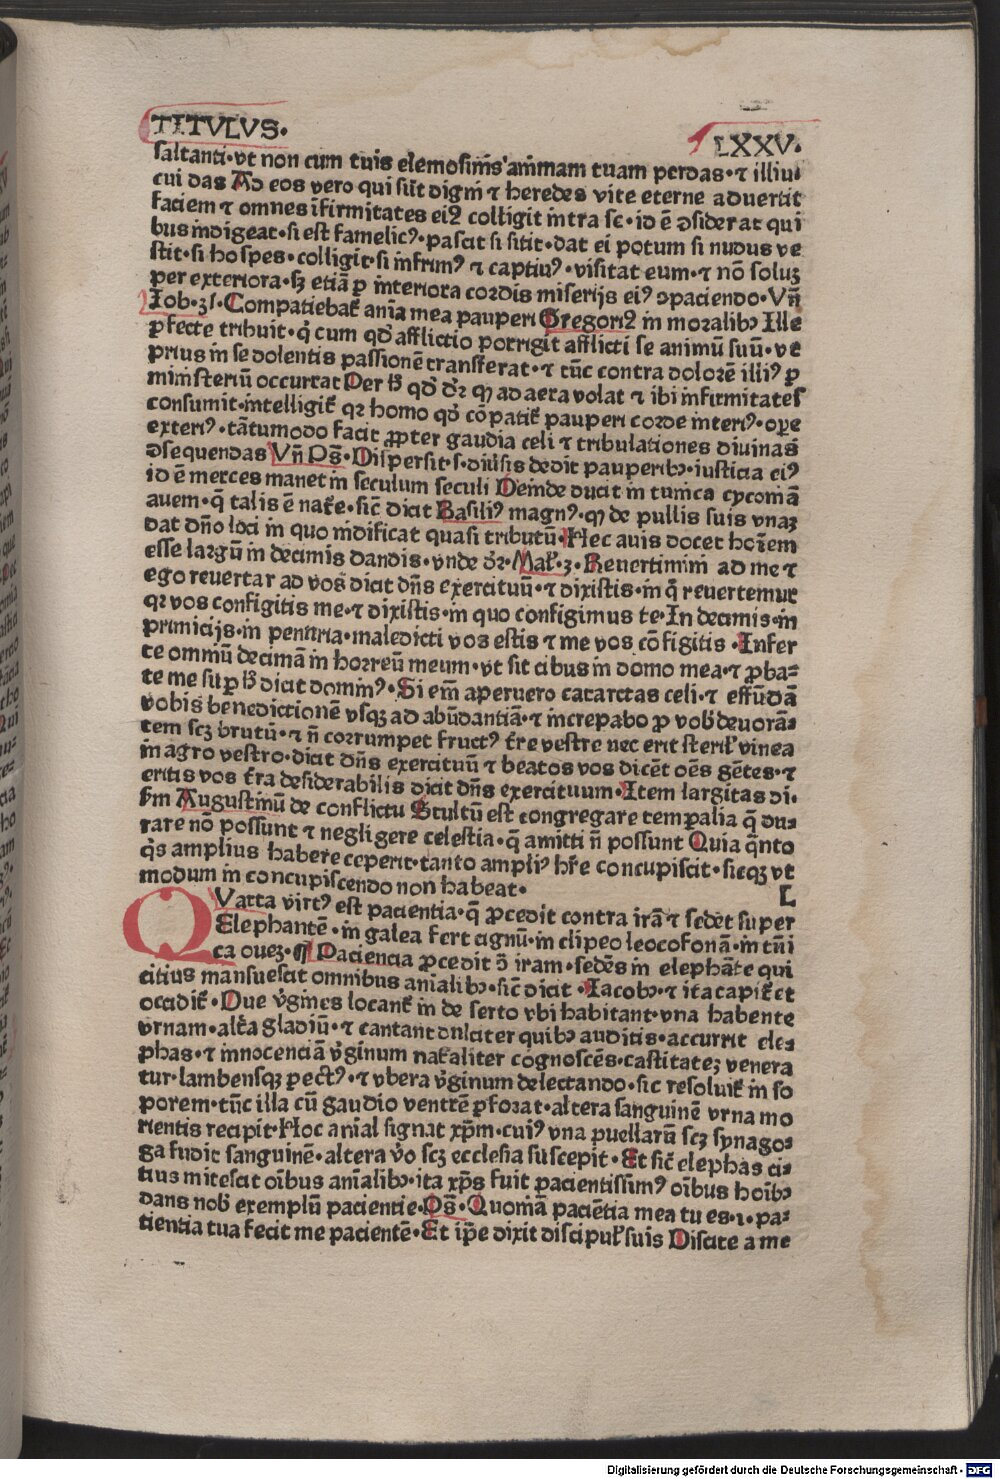 TITVLVS.
LXXV.
saltanti·vt non cum tuis elemosinis animam tuam perdas·⁊ illiuſ
cui das Ad eos vero qui sūt digni ⁊ heredes vite eterne aduertit
faciem ⁊ omnes ĩfirmitates eiꝰ colligit intra se·id ē ꝺsiderat qui
bus indigeat·si est famelicꝰ·pascit si sitit·dat ei potum si nudus ve
stit·si hospes·colligit·si infrimꝰ ⁊ captiuꝰ·visitat eum·⁊ nō soluꝫ
per exteriora·sꝫ etiā ꝑ interiora cordis miserijs eiꝰ ↄpaciendo·Vñ
Iob·31·Compatiebat᷑ ania mea pauperi Gregoriꝰ in moralibꝫ Ille
ꝑfecte tribuit·q̇ cum qď afflictio porrigit afflicti se animū suū·vt
prius in se dolentis passionē transferat·⁊ tūc contra dolorē illiꝰ ꝑ
ministeriū occurrat Per ħ qď dr̄ ꝙ ad aera volat ⁊ ibi infirmitates
consumit·intelligit᷑ qꝛ homo qď cōpatit᷑ pauperi corde interiꝰ·oꝑe
exteriꝰ·tātumodo facit ꝓpter gaudia celi ⁊ tribulationes diuinas
ꝺsequendas Vñ Pš·Dispersit·s·diūsis dedit pauperibꝫ·iusticia eiꝰ
id ē merces manet in seculum seculi Deinde ducit in tunica cyconiā
auem·q̄ talis ē nat᷑e·sic̄ dicit Basiliꝰ magnꝰ·ꝙ de pullis suis vnaꝫ
dat dño loci in quo nidificat quasi tributū·Hec auis docet hoīem
esse largū in decimis dandis·vnde dr̄·Mal᷑·3·Reuertimini ad me ⁊
ego reuertar ad vos dicit dñs exercituū·⁊ dixistis·in q̄ reuertemur
qꝛ vos configitis me·⁊ dixistis·in quo configimus te·In decimis·in
primicijs·in penuria·maledicti vos estis ⁊ me vos cōfigitis·Infer
te omniū decimā in horreū meum·vt sit cibus in domo mea·⁊ ꝓba-
te me suꝑ ħ dicit dominꝰ·Si em̄ aperuero catarctas celi·⁊ effūdā
vobis benedictionē vsqꝫ ad abūdantiā·⁊ increpabo ꝓ vob̄ deuorā-
tem scꝫ brutū·⁊ ñ corrumpet fructꝰ t᷑re vestre nec erit steril᷑ vinea
in agro vestro·dicit dñs exercituū ⁊ beatos vos dicēt oēs gētes·⁊
eritis vos t᷑ra desiderabilis dicit dñs exercituum·Item largitas di·
ẜm Augustinū de conflictu Stultū est congregare temꝑalia q̄ du-
rare nō possunt ⁊ negligere celestia·q̄ amitti ñ possunt Quia q̄nto
q̇s amplius habere ceperit·tanto ampliꝰ hr̄e concupiscit·sicqꝫ vt
modum in concupiscendo non habeat·
L
QVarta virtꝰ est paciencia·q̄ ꝓcedit contra irā ⁊ sedet super
Elephantē·in galea fert cignū·in clipeo leocofonā·in tūi
ca oueꝫ·¶ Paciencia ꝓcedit ↄ̄ iram·sedēs in elephāte qui
citius mansuescit omnibus anialibꝫ·sic̄ dicit·Iacobꝫ·⁊ ita capit᷑ et
occidit᷑·Due v̇gines locant᷑ in deserto vbi habitant·vna habente
vrnam·alt᷑a gladiū·⁊ cantant dulciter quibꝫ auditis·accurrit ele-
phas·⁊ innocenciā v̇ginum nat᷑aliter cognoscēs·castitateꝫ venera
tur·lambensqꝫ pectꝰ·⁊ vbera v̇ginum delectando·sic resoluit᷑ in so
porem·tūc illa cū gaudio ventrē ꝑforat·altera sanguinē vrna mo
rientis recipit·Hoc anial signat xp̄m·cuiꝰ vna puellarū scꝫ synago-
ga fudit sanguinē·altera v̇o scꝫ ecclesia suscepit·Et sic̄ elephas ci-
tius mitescit oībus anialibꝫ·ita xp̄s fuit pacientissimꝰ oībus hoībꝫ
dans nob̄ exemplū pacientie·Pš·Quoniā paciētia mea tu es·i·pa-
tientia tua fecit me pacientē·Et ip̄e dixit discipul᷑ suis Discite a me
Digitalisierung gefördert durch die Deutsche Forschungsgemeinschaft - DFG